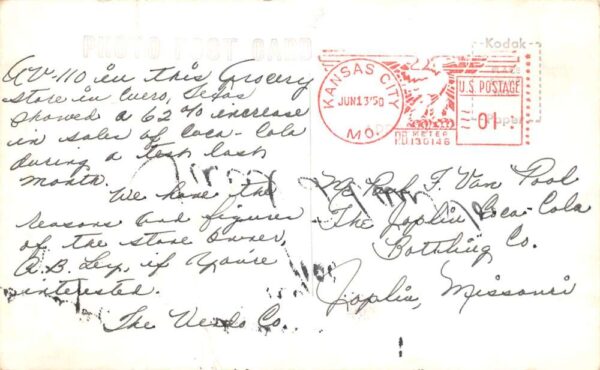 PHOTO POST CARD
A V-110 in this Grocery
store in Cuero, Texas
showed a 62% increase
in sales of Coca-Cola
during a test last
month.
We have the
reasons and figures
of the store owner,
if you're
interested.
The Vendo Co.
KANSAS CITY
JUN 13 '50
MO.
U.S. POSTAGE
01
METER
130146
Kodak
Paper
T. Van Pool
The Joplin Coca-Cola
Bottling Co.
Joplin, Missouri